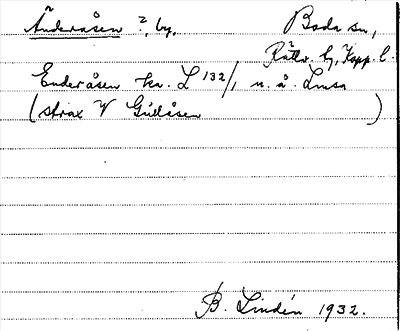 Änderåsen ?, by,
Boda sn,
Rättv. hg, Kopp. l.
Enderåsen ka. L 132/1 n. å.
(strax V Gulåsen)
B. Lindén 1932.